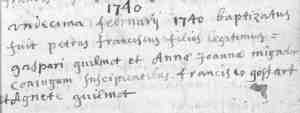 1740
undecima februarij 1740 baptizatus
fuit petrus franciscus filius legitimus =
gaspari guilmot et Annæ Joannæ migade
coniugum suscipientibus francisco gossart
et Agnete guilmot